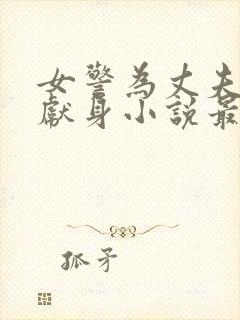 女警為丈夫
獻身小說最
孤矛